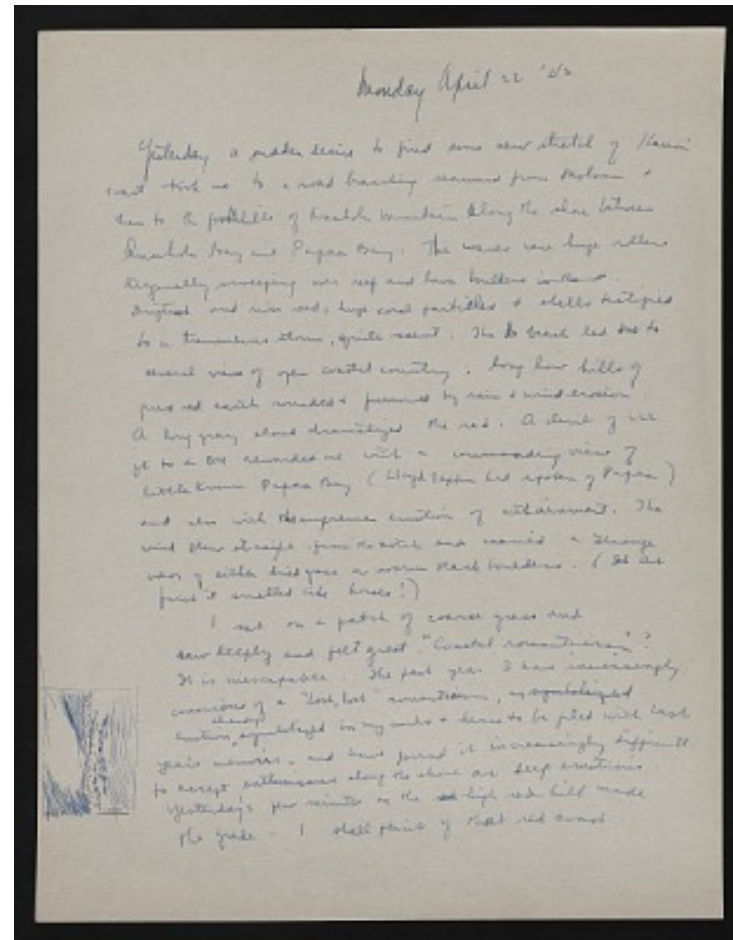 Monday April 22 '40
Yesterday a sudden desire to find some new stretch of Kauai
coast took me to a road branching seaward from
to the foothills of Mountain along the shore between
Bay and Papaa Bay. The waves were huge rollers
sweeping over reef and lava boulders
and reeds, huge coral particles & shells testified
to a tremendous storm, quite recent. The beach led me to
several views of open coastal country. Long low hills of
red earth rounded & by rain & wind erosion
A long gray cloud dramatized the red. A climb of
ft to a rewarded me with a commanding view of
little known Papaa Bay (Lloyd Sexton had spoken of Papaa)
and also with the supreme emotion of attainment. The
wind blew straight from the and carried a strange
odor of either dried grass or warm black boulders. (
found it smelled like horses!)
I sat on a patch of coarse grass and
saw deeply and felt great "Coastal romanticism"?
It is inescapable. The past year I have increasingly
conscious of a "lost, lost" romanticism, as symbolized
already
emotion, symbolized in my work & hence to be filed with last
year's memoirs - and have found it increasingly difficult
to accept enthusiasms along the shore as deep emotions.
Yesterday's few minutes on the high red hill made
the grade - I shall think of that red coast